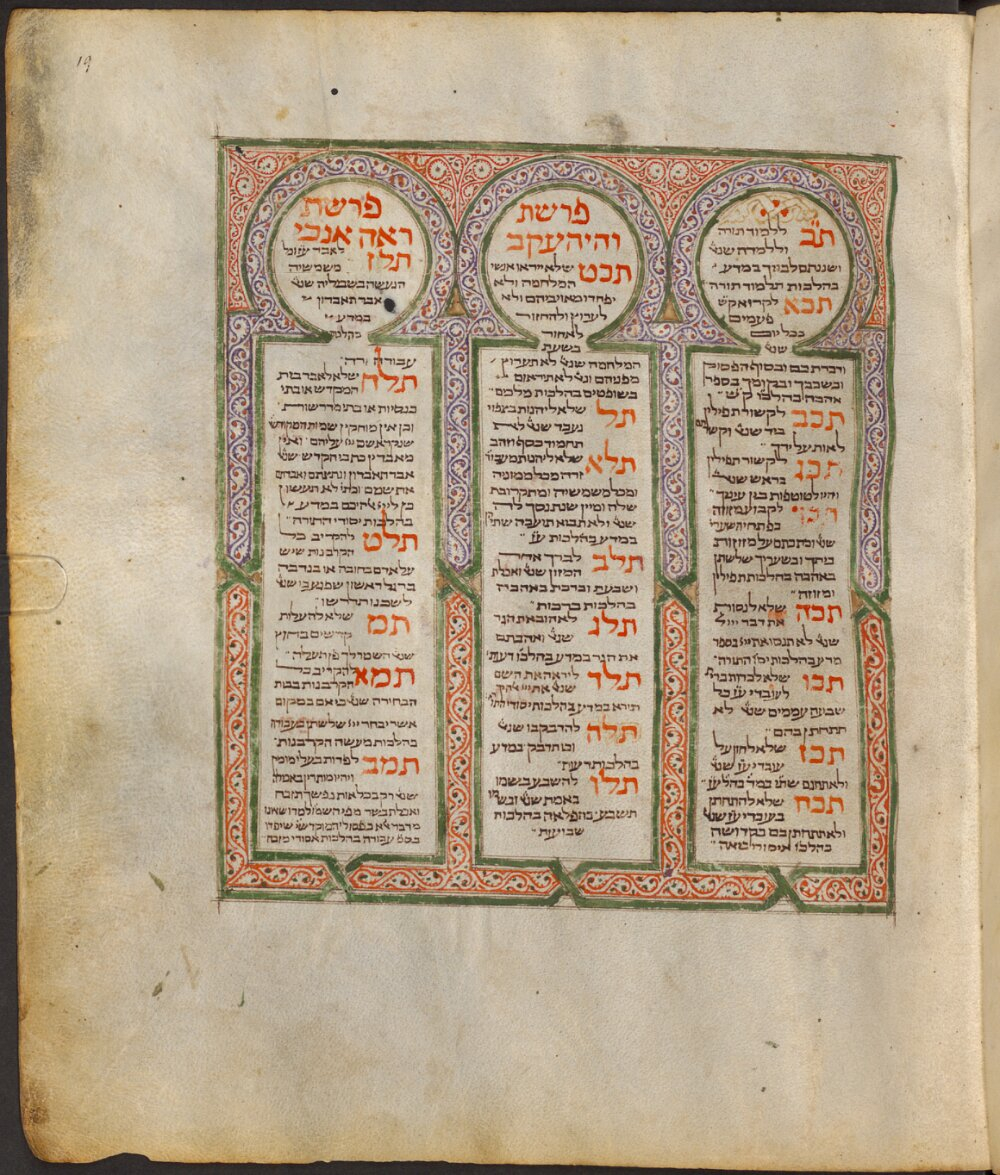 19
תב
ללמוד תורה
וללמדה שנ׳
ושננתם לבניך במדע
בהלכות תלמוד תורה
תכא
לקרוא ק״ש
פעמים
בכל יום
שנ׳
ודברת בם ובסוף הפסוק
ובשכבך ובקומך בספר
אהבה בהלכו׳ ק״ש
תכב לקשור תפילין
ביד שנ׳ וקשרתם
לאות על ידך
לקשור תפילין
בראש שנ׳
והיו לטוטפות בין עיניך
לקבוע מזוזה
בפתחי השערי׳
שנ׳ וכתבתם על מזוזות
ביתך ובשעריך שלשתן
באהבה בהלכות תפילין
ומזוזה
תכה שלא לנסות
את דבר ייי
שנ׳ לא תנסו את ייי בספר
מדע בהלכות יסו׳ התורה
תכו שלא לכרות ברית
לעובדי ע״ז כל
שבעה עממים שנ׳ לא
תתחתן בהם
תכז שלא לחון על
עובדי ע״ז שנ׳
ולא תחנם
תכח שלא להתחתן
בעובדי ע״ז שנ׳
ולא תתחתן בם בקדושה
בהלכו׳ איסורי ביאה
פרשת
והיה עקב
תכט
שלא יראו אנשי
המלחמה ולא
יפחדו מאויביהם ולא
לערוץ ולהחזור
לאחור
בשעת
המלחמה שנ׳ לא תערוץ
מפניהם ונ׳ לא תיראום
בשופטים בהלכות מלכים
תל שלא ליהנות בצפוי
נעבד שנ׳ לא
תחמוד כסף וזהב
תלא שלא ליהנות מע״ז
זרה מכל ממוניה
ומכל משמשיה ומתקרובת
שלה ומיין שנתנסך לה
שנ׳ ולא תביא תועבה
במדע בהלכות ע״ז
תלב לברך אחר
המזון שנ׳ ואכלת
ושבעת וברכת באהבה
בהלכות ברכות
תלג לאהוב את הגר
שנ׳ ואהבתם
את הגר במדע בהלכו׳ דעות
תלד ליראה את השם
שנ׳ את ייי אלהיך
תירא במדע בהלכות יסודי התו׳
תלה להדבק בו שנ׳
ובו תדבק במדע
בהלכות דעות
תלו להשבע בשמו
באמת שנ׳ ובשמו
תשבע בהפלאה בהלכות
שבועות
פרשת
ראה אנכי
תלז
לאבד ע״ז וכל
משמשיה
הנעשה בשבילה שנ׳
אבד תאבדון
במדע
בהלכו׳
עבודה זרה
תלח שלא לאבד בית
המקדש או בתי
כנסיות או בתי מדרשות
וכן אין מוחקין שמות המקודשין
שנקרא שם עליהם ואין
מאבדין כתבי הקדש שנ׳
אבד תאבדון ונתצתם ואבדתם
את שמם וכתי׳ לא תעשון
כן לייי אלהיכם במדע
בהלכות יסודי התורה
תלט להקריב כל
הקרבנות שיש
על אדם בחובה או בנדבה
ברגל ראשון שפגע בו שנ׳
לשכנו תדרשו
תמ שלא להעלות
קדשים בחוץ
שנ׳ השמר לך פן תעלה
תמא להקריב כל
הקרבנות בבית
הבחירה שנ׳ כי אם במקום
אשר יבחר ייי שלשתן בעבודה
בהלכות מעשה הקרבנות
תמב לפדות בעלי מומין
ויהיו מותרין באכילה
שנ׳ רק בכל אות נפשך תזבח
ואכלת בשר מפי השמו׳ למדו שאינו
מדבר אלא בפסולי המקדשין שיפדו
בספ׳ עבודה בהלכות אסורי מזבח